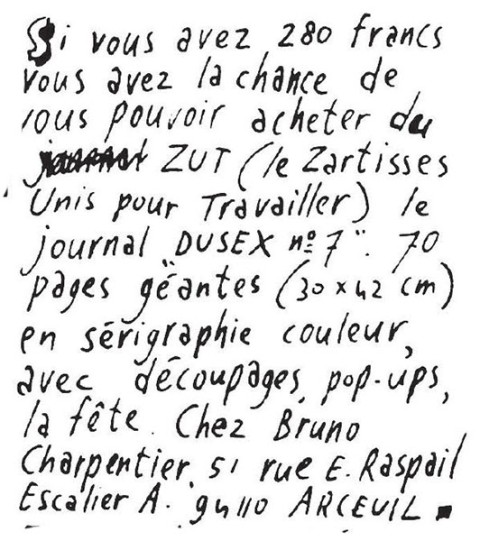 Si vous avez 280 francs
vous avez la chance de
vous pouvoir acheter du
journal ZUT (le Zartisses
Unis pour Travailler) le
journal "DUSEX nº 7". 70
pages géantes (30 x 42 cm)
en sérigraphie couleur,
avec découpages, pop-ups,
la fête. Chez Bruno
Charpentier, 51 rue E. Raspail
Escalier A. 94110 ARCEUIL.